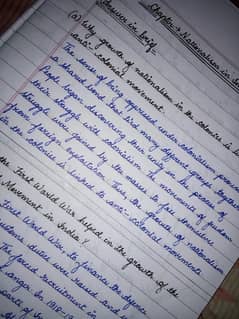 Chapter → Nationalism in
Answer in brief
(a) Why growth of nationalism in the colonies is
anti-colonial movement.
The sense of being oppressed under colonialism
a shared bond that bind many different groups together
People began discovering their unity in the process of
their struggle with colonialism. The movements of
struggle were joined by the masses to free themselves
from foreign exploitation. Thus the growth of nationalism
in the colonies is linked to anti-colonial movements.
the First World War helped in the growth of the
Movement in India?
First World War, to finance the defence
customs duties were raised and
The forced recruitment in
anger. In 1918-19